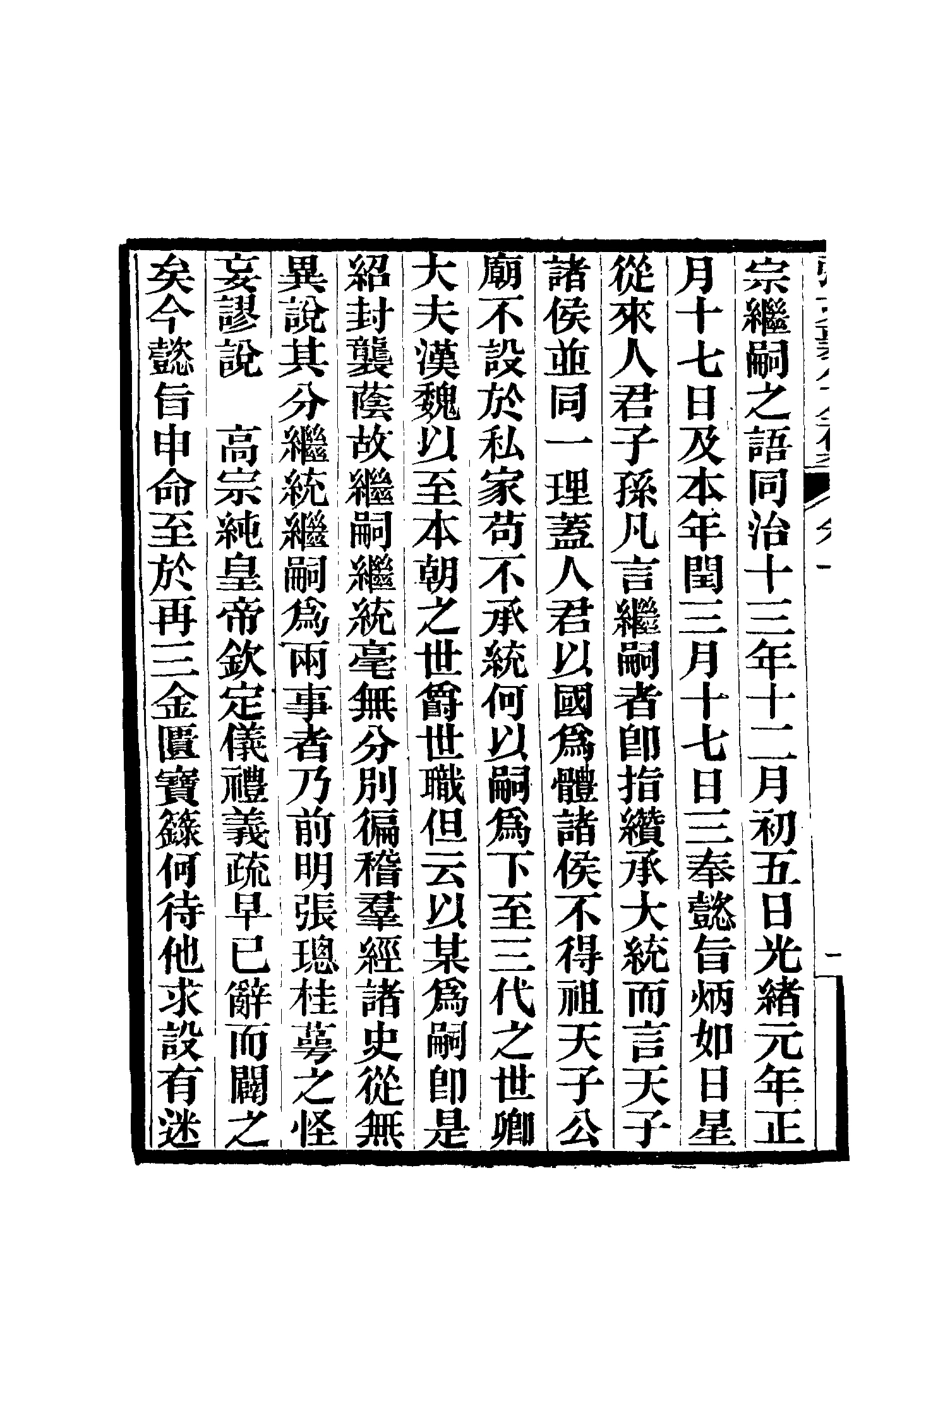 宗繼嗣之語同治十三年十二月初五日光緒元年正
月十七日及本年閏三月十七日三奉懿旨炳如日星
從來人君子孫凡言繼嗣者卽指纘承大統而言天子
諸侯並同一理蓋人君以國爲體諸侯不得祖天子公
廟不設於私家苟不承統何以嗣爲下至三代之世卿
大夫漢魏以至本朝之世爵世職但云以某爲嗣卽是
紹封襲蔭故繼嗣繼統毫無分別徧稽羣經諸史從無
異說其分繼統繼嗣爲兩事者乃前明張璁桂萼之怪
妄謬說　高宗純皇帝欽定儀禮義疏早已辭而闢之
矣今懿旨申命至於再三金匱寶籙何待他求設有迷